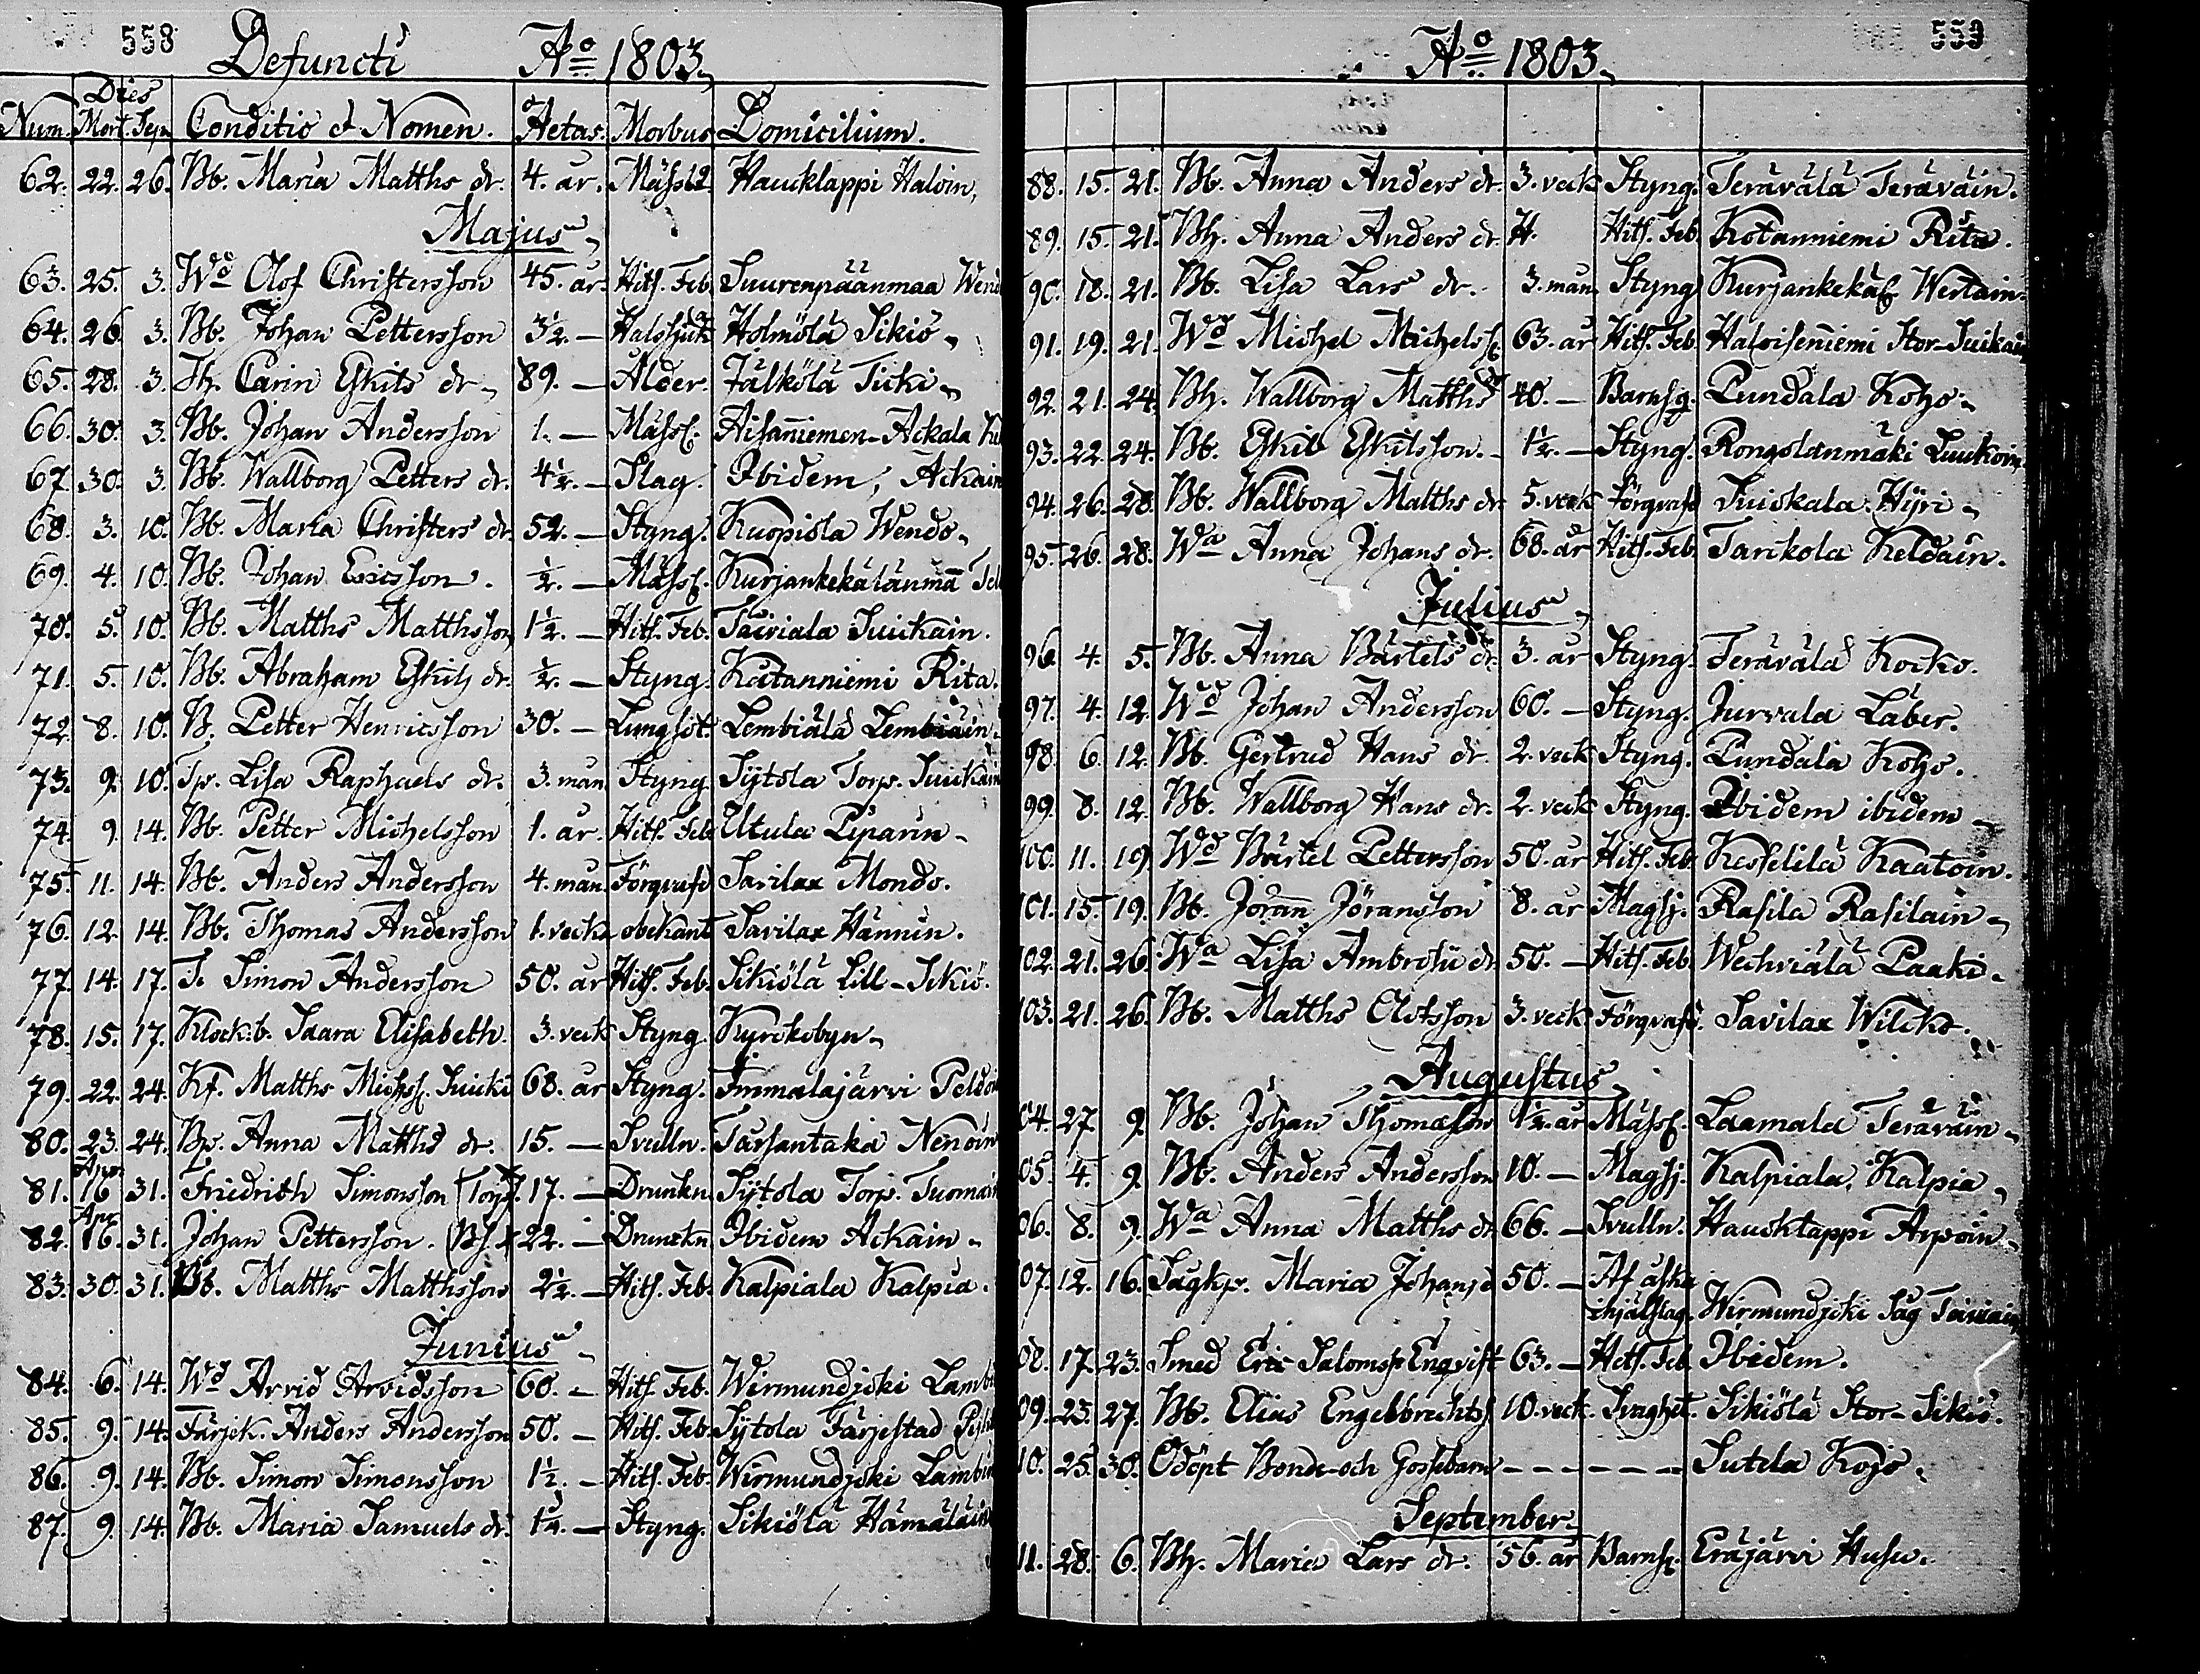 558
Defuncti Ao 1803.
Dies
Num. Mort. Sep. Conditio et Nomen. Aetas. Morbus Domicilium.
62. 22. 26. Bb. Maria Matths dr. 4. år. Mässl. Haucklappi Haloin,
Majus
63. 25. 3. Wd Olof Christersson 45. år. Hits. Feb. Suurenpäänmaa
64. 26. 3. Bb. Johan Pettersson 3½. — Halssjuk Holmölä Sikiö
65. 28. 3. Carin Eskils dr. 89. — Ålder. Jälkölä Ticki
66. 30. 3. Bb. Johan Andersson 1. — Mässl. Aisaniemen-Ackala
67. 30. 3. Bb. Wallborg Petters dr. 4½. — Slag. Ibidem, Ackain
68. 3. 10. Bb. Maria Christers dr. 52. — Styng. Kuopisla Wendo
69. 4. 10. Bb. Johan Ericsson. ½. — Mässl. Kurjankekälänmä
70. 5. 10. Bb. Matths Matthsson 1½. — Hits. Feb. Suickain.
71. 5. 10. Bb. Abraham Eskils dr. ½. — Styng. Kotanniemi Rita.
72. 8. 10. B. Petter Henricsson 30. — Lungsot. Lembiälä Lembiäin.
73. 9. 10. Lisa Raphaels dr. 3. mån. Styng. Sÿtola Torp. Suickain
74. 9. 14. Bb. Petter Michelsson 1. år. Hits. Feb. Utula Piparin
75. 11. 14. Bb. Anders Andersson 4. mån. Förgrafd Savilax Mondo.
76. 12. 14. Bb. Thomas Andersson 1. vecka obekant Savilax Hännin.
77. 14. 17. Simon Andersson 50. år Hits. Feb. Sikiölä Lill-Sikiö.
78. 15. 17. Klock:b. Saara Elisabeth. 3. veck Styng. Kyrckobyn
79. 22. 24. Matths Suicki 68. år Styng. Immalajärvi
80. 23. 24. Anna Matths dr. 15. — Svulln. Nenoin
Apr.
81. 16 31. Friedrich Simonsson 17. — Drunkn. Sÿtola Torp. Tuomain
Apr.
82. 16. 31. Johan Pettersson. 22. — Drunckn Ibidem Ackain
83. 30. 31. Bb. Matths Matthsson 2½. — Hits. Feb. Kalpiala Kalpia.
Junius
84. 6. 14. Wd Arvid Arvidsson 60. — Hits. Feb. Wirmundjoki
85. 9. 14. Färjek. Anders Andersson 50. — Hits. Feb. Sÿtola Färjestad
86. 9. 14. Bb. Simon Simonsson 1½. — Hits. Feb. Wirmundjoki
87. 9. 14. Bb. Maria Samuels dr. — Styng. Sikiölä Hämäläin
559
Ao 1803.
88. 15. 21. Bb. Anna Anders dr. 3. veck Styng. Terävälä Teräväin.
89. 15. 21. Bh. Anna Anders dr. Hits. Feb. Kotanniemi Rita.
90. 18. 21. Bb. Lisa Lars dr. 3. mån Styng Kurjankekäl.
91. 19. 21. Wd Michel Michels 63. år Hits. Feb. Haloiseniemi Stor-Suikain
92. 21. 24. Bh. Wallborg Matths 40. — Barnsg. Pundala Koho
93. 22. 24. Bb. Eskil Eskilsson. 1½. — Styng. Luukoin
94. 26. 28. Bb. Wallborg Matths dr. 5. veck Förgrafd Suickala Hÿri
95. 26. 28. Wa Anna Johans dr. 68. år Hits. Feb. Tarikola
Julius
96 4. 5. Bb. Anna Bärtels dr. 3. år Styng. Terävälä Kocko.
97. 4. 12. Wd Johan Andersson 60. — Styng. Jurvala Läber.
98. 6. 12. Bb. Gertrud Hans dr. 2. veck Styng. Pundala Koho.
99. 8. 12. Bb. Wallborg Hans dr. 2. veck Styng. Ibidem ibidem
100. 11. 19. Wd Bärtel Pettersson 50. år Hits. Feb. Kesselilä Kaatoin.
101. 15. 19. Bb. Jöran Jöransson 8. år Magsj. Rasila Rasilain
102. 21. 26. Wa Lisa Ambrosii dr. 50. — Hits. Feb. Wechviälä Paaki
103. 21. 26. Bb. Matths Olofsson 3. veck Förgrafd. Savilax Wilcko.
Augustus
04. 27 9. Bb. Johan Thomasson 1½. år Mässl. Laamala Teräväin
05 4. 9. Bb. Anders Andersson 10. — Magsj. Kalpiala, Kalpia
06. 8. 9. Wa Anna Matths dr 66. — Svulln. Haucklappi Arpoin
07. 12. 16. Sagkp. Maria Johans d 50. — Af åska
ihjälslag. Wirmundjoki Såg
08. 17. 23. Smed Eric Salomss. Enqvist 63. — Hets. Feb. Ibidem.
09. 25. 27. Bb. Elias Engelbrechts. 10. veck. Svaghet. Sikiölä Stor-Sikiö.
10. 25. 30. Odöpt Bonde- och Gossebarn — — — — — — Sutela Kojo
September.
11. 28. 6. Bh. Maria Lars dr. 56. år Barns. Eräjärvi Husu.